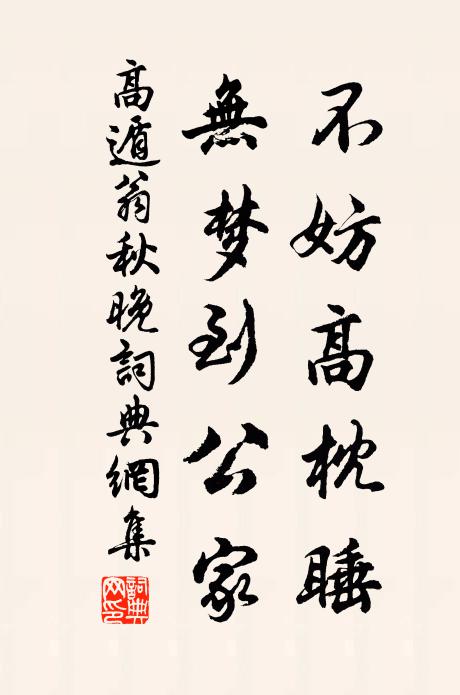 不妨高枕睡
無梦到公家
高遁翁秋晚詞典網集
詞典网印